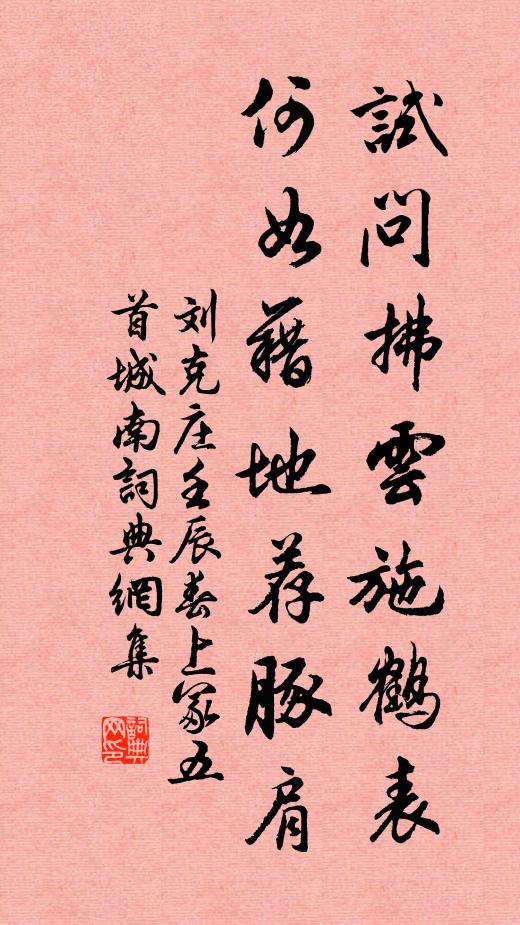 試問拂雲施鶴表
何如藉地荐豚肩
刘克庄壬辰春上冢五
首城南詞典網集
詞典网印